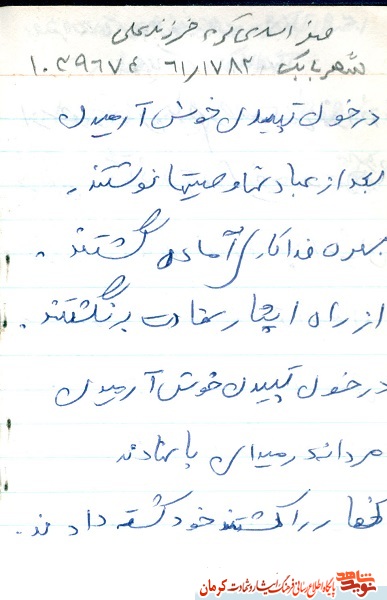 صفر اسدی کرم فرزند علی
شهربابک ۶۱/۱۷۸۲ ۱۰۳۹۶۷۴
در خون تپیدن خوش آرمیدن
بعد از عبادتها وصیتها نوشتند.
بهره فداکاری آماده گشتند.
از راه ایثار شهادت برنگشتند.
در خون تپیدن خوش آرمیدن
مردانه در میدان پا نهادند
کفار را کشتند خود کشته دادند.
شاهد نوید
پایگاه اطلاع رسانی فرهنگ ایثار و شهادت کرمان